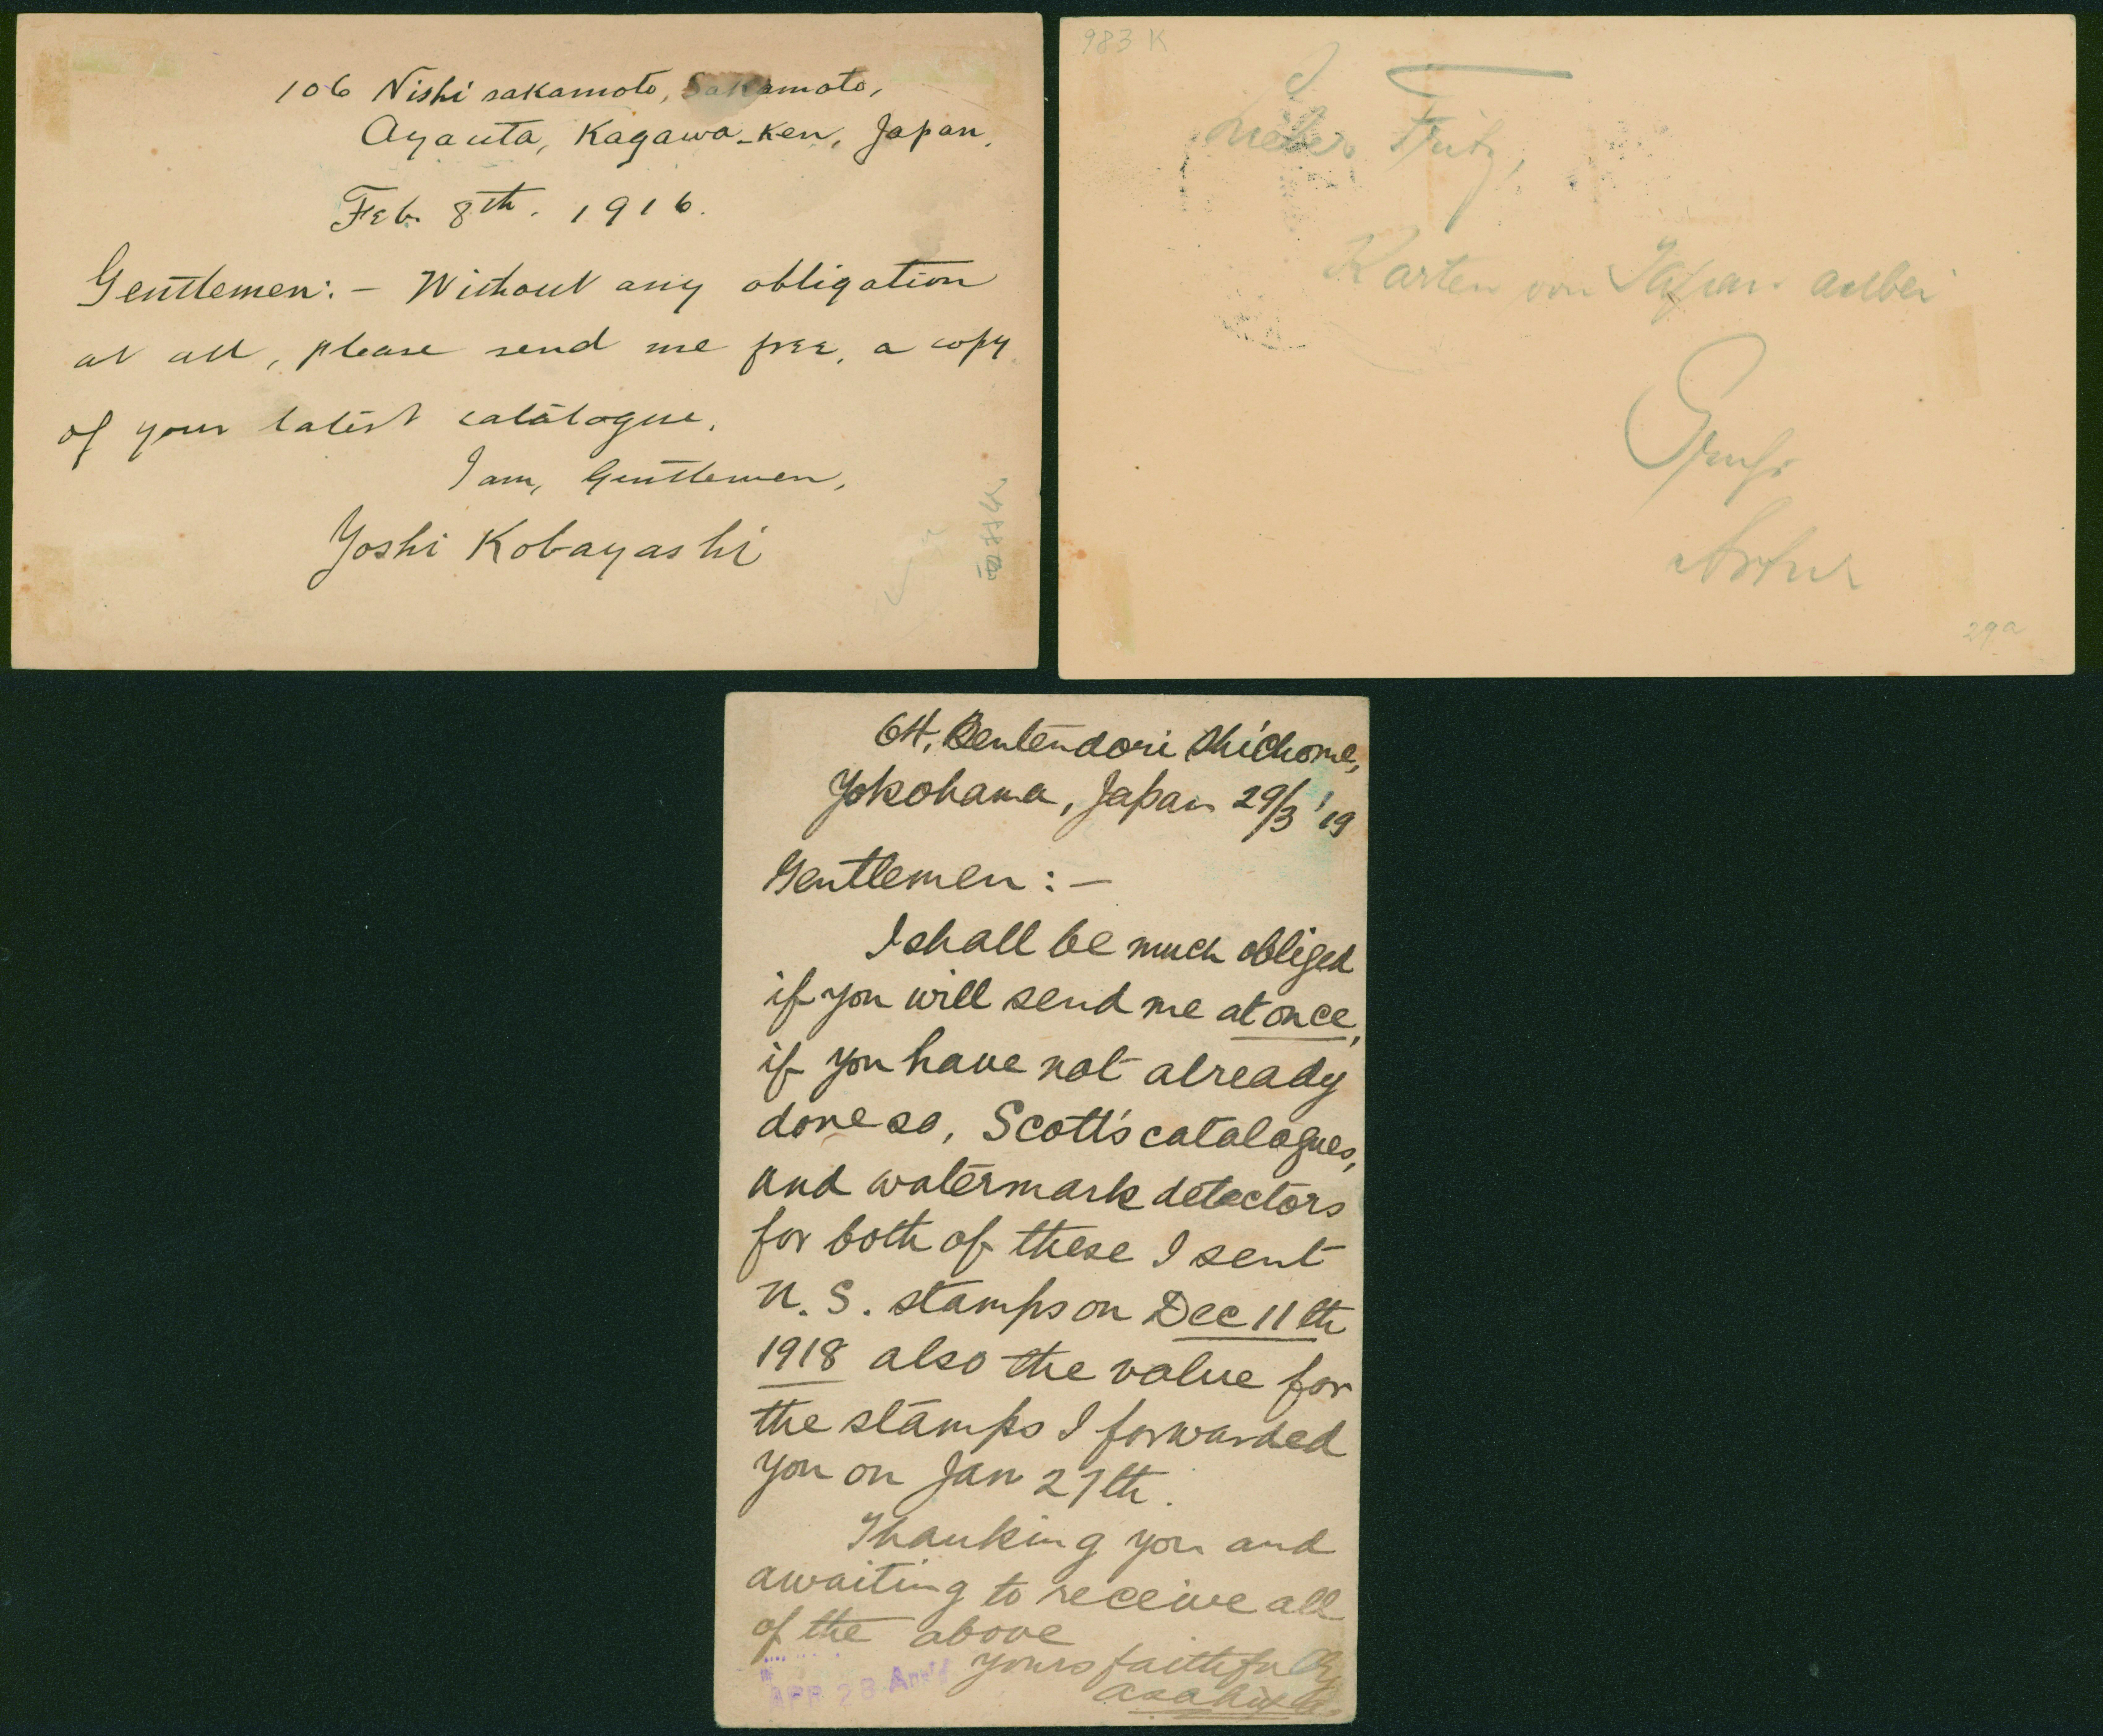 106 Nishisakamoto, Sakamoto,
Ayauta, Kagawa-Ken, Japan,
Feb. 8th. 1916.
Gentlemen:- Without any obligation
at all, please send me free, a copy
of your latest catalogue.
I am, Gentlemen,
Yoshi Kobayashi
983 K
Lieber Fritz,
Karten von Japan anbei
Artur
29a
64, Bentendori Shichome,
Yokohama, Japan 29/3 '19
Gentlemen:-
I shall be much obliged
if you will send me at once,
if you have not already
done so, Scott's catalogues,
and watermark detectors
for both of these I sent
U. S. stamps on Dec 11th
1918 also the value for
the stamps I forwarded
you on Jan 27th.
Thanking you and
awaiting to receive all
of the above
yours faithfully
APR 28 Ans'd